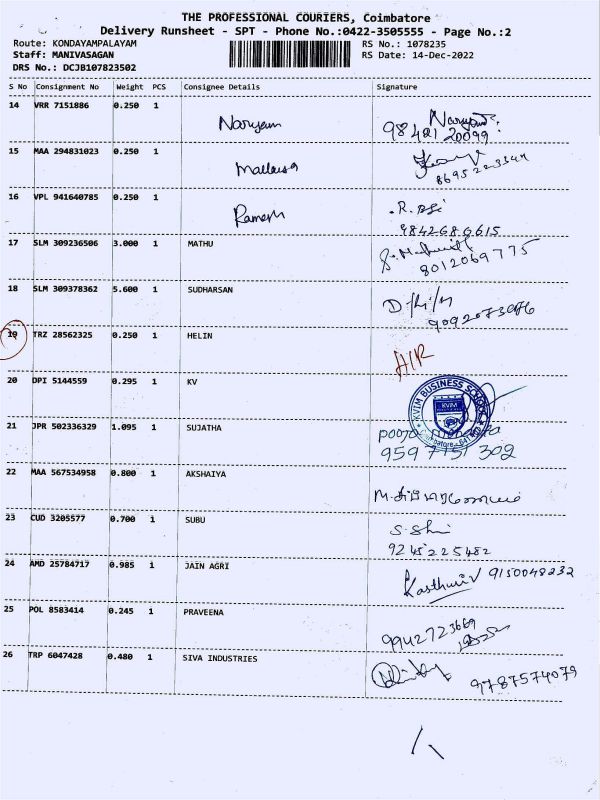 THE PROFESSIONAL COURIERS, Coimbatore
Delivery Runsheet - SPT - Phone No.:0422-3505555 - Page No.:2
Route: KONDAYAMPALAYAM RS No.: 1078235
Staff: MANIVASAGAN RS Date: 14-Dec-2022
DRS No.: DCJB107823502
S No Consignment No Weight PCS Consignee Details Signature
14 VRR 7151886 0.250 1 Narayan
98421 20099
15 MAA 294831023 0.250 1
16 VPL 941640785 0.250 1 Ramesh
9842686615
17 SLM 309236506 3.000 1 MATHU
8012069775
18 SLM 309378362 5.600 1 SUDHARSAN
19 TRZ 28562325 0.250 1 HELIN
20 DPI 5144559 0.295 1 KV
KVIM BUSINESS SCHOOL
KVIM
21 JPR 502336329 1.095 1 SUJATHA
9597151302
22 MAA 567534958 0.800 1 AKSHAIYA
23 CUD 3205577 0.700 1 SUBU
9245225482
24 AMD 25784717 0.985 1 JAIN AGRI
9150048232
25 POL 8583414 0.245 1 PRAVEENA
9942723669
26 TRP 6047428 0.480 1 SIVA INDUSTRIES
9787574079